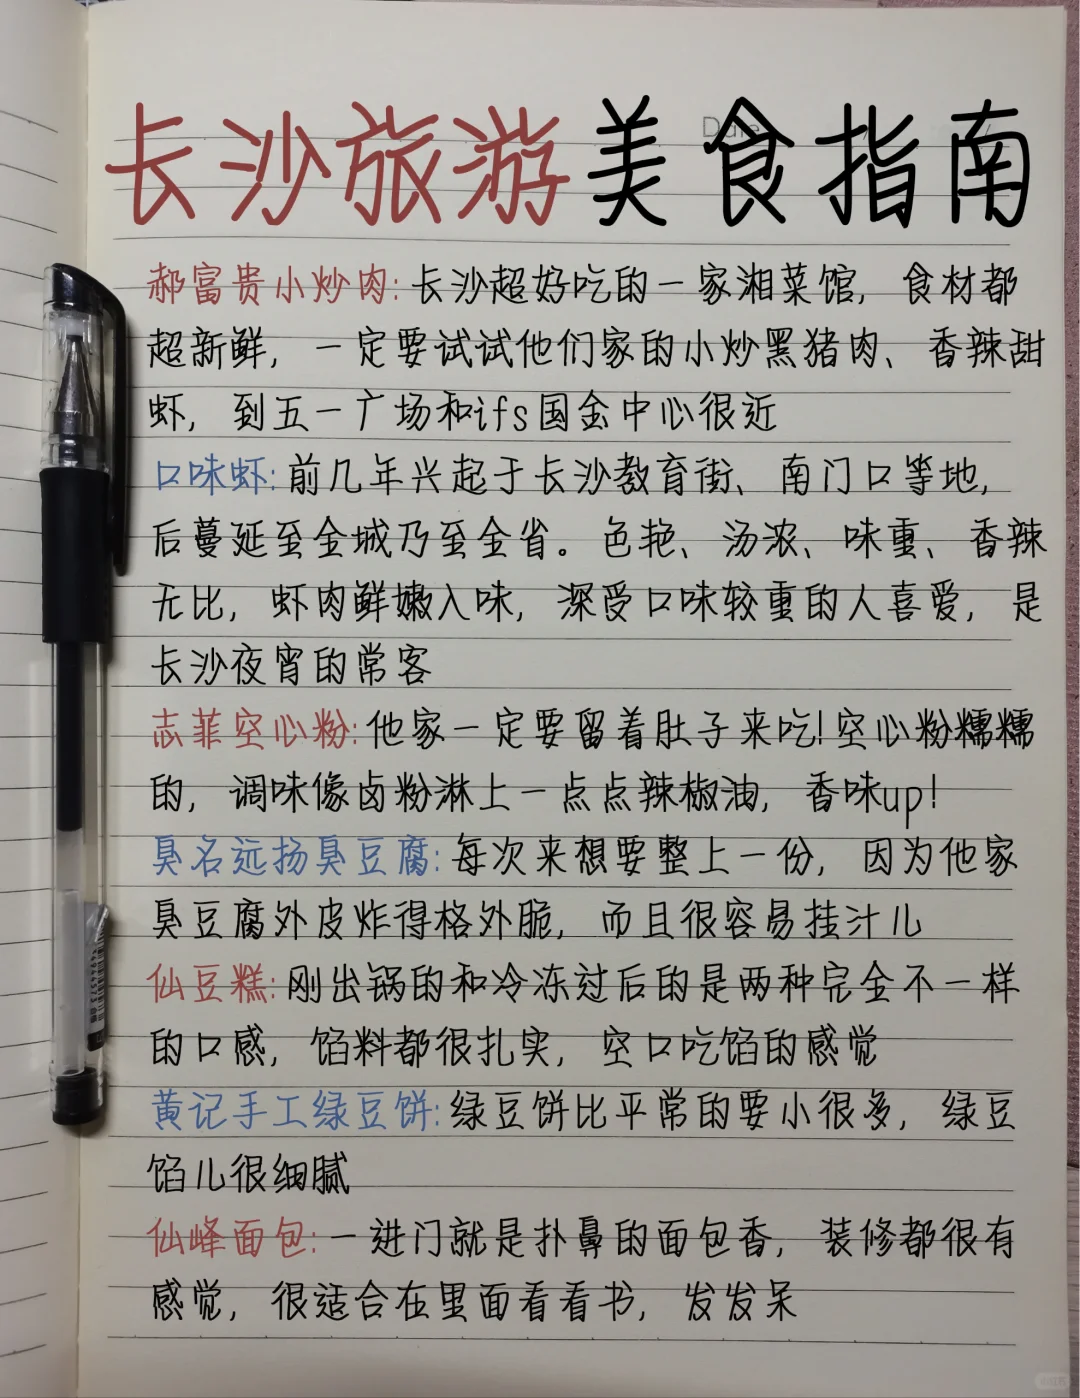 长沙旅游美食指南
郝富贵小炒肉:长沙超好吃的一家湘菜馆,食材都
超新鲜,一定要试试他们家的小炒黑猪肉、香辣甜
虾,到五一广场和ifs国金中心很近
口味虾:前几年兴起于长沙教育街、南门口等地,
后蔓延至全城乃至全省。色艳、汤浓、味重、香辣
无比,虾肉鲜嫩入味,深受口味较重的人喜爱,是
长沙夜宵的常客
志菲空心粉:他家一定要留着肚子来吃!空心粉糯糯
的,调味像卤粉淋上一点点辣椒油,香味up!
臭名远扬臭豆腐:每次来想要整上一份,因为他家
臭豆腐外皮炸得格外脆,而且很容易挂汁儿
仙豆糕:刚出锅的和冷冻过后的是两种完全不一样
的口感,馅料都很扎实,空口吃馅的感觉
黄记手工绿豆饼:绿豆饼比平常的要小很多,绿豆
馅儿很细腻
仙峰面包:一进门就是扑鼻的面包香,装修都很有
感觉,很适合在里面看看书,发发呆